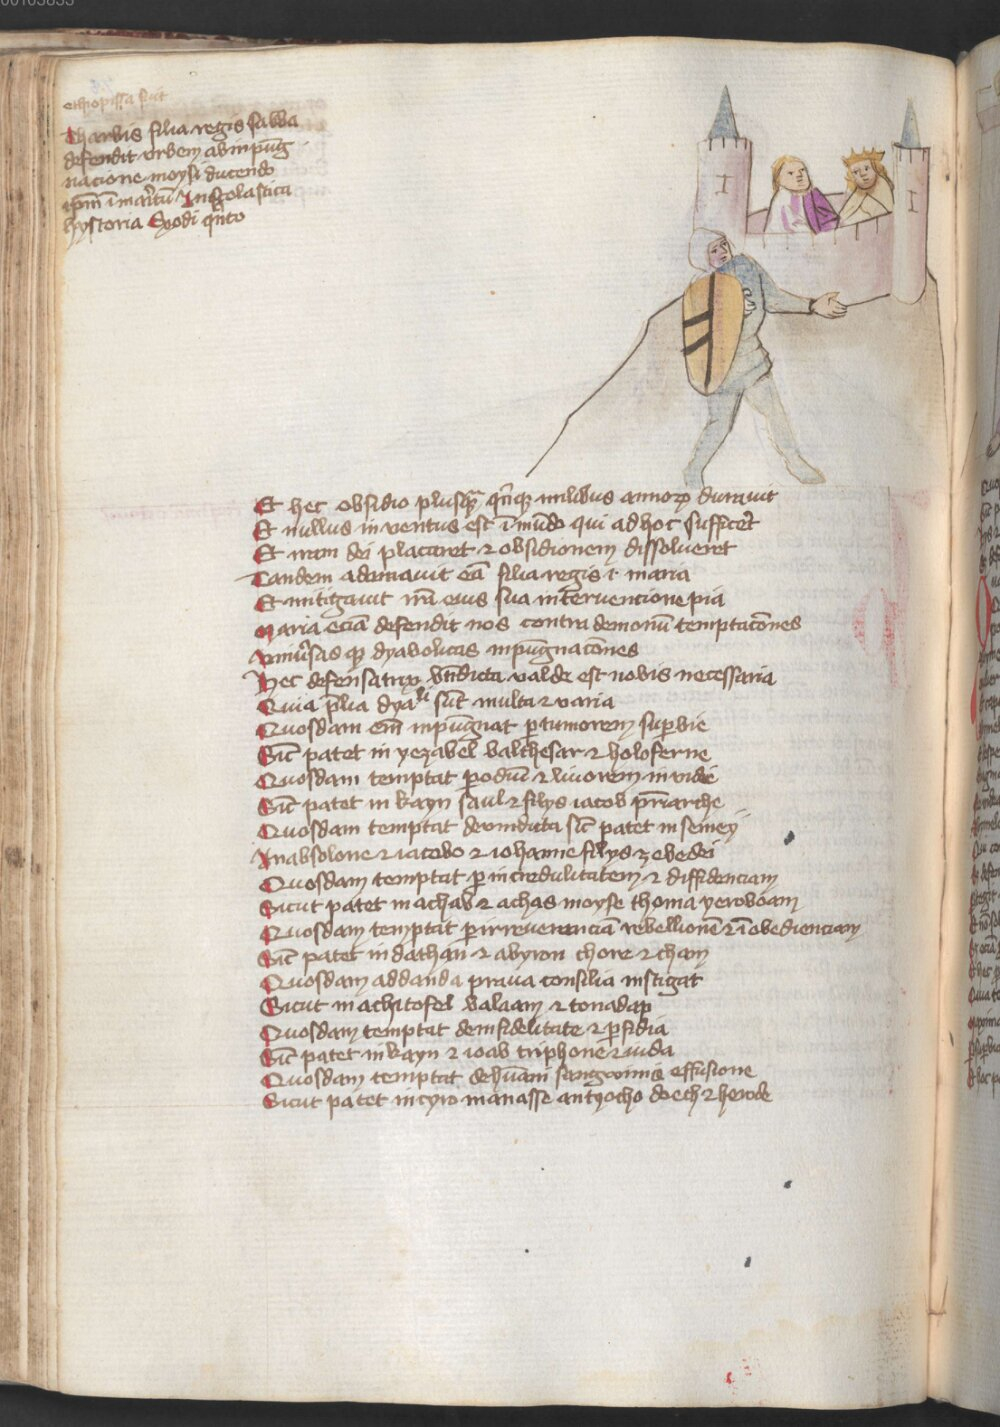 ethiopissa fuit
Tharbis filia regis sabba
defendit urbem ab inpūg
nacione moysi ducendo
ip̄m ī mar̄itū In scolastica
hystoria Exodi qn̄to
Et hec obsidio plusq̄ qn̄q̢ milibus annoꝝ durauit
Et nullus inventus est ī mūdo qui ad hoc sufficet̄
Et iram dei placaret ⁊ obsidionem dissolueret
Tandem adamauit eā filia regis i maria
Et mitigauit irā eius sua interventione pia
Maria eciā defendit nos contra demonū temptacōnes
Vniūsas q̢ dyabolicas inpūgnacōnes
Hec defensatrix bn̄dicta valde est nobis necessaria
Quia p̄lia dyaˡⁱ sūt multa ⁊ varia
Quosdam em̄ inpūgnat ꝑ tumorem suꝑbie
Sic̄ patet in yezabel balthesar ⁊ holoferne
Quosdam temptat ꝑ odiū ⁊ liuorem inuidie
Sic̄ patet in kayn saul ⁊ filys iacob pr̄iarche
Quosdam temptat de vindicta sic̄ patet in semey
In absolone ⁊ iacobo ⁊ iohanne filys zebedei
Quosdam temptat ꝑ incredulitatem ⁊ diffidenciam
Sicut patet in achab ⁊ achas moyse thoma yeroboam
Quosdam temptat ꝑ irreuerenciā rebellionē ⁊ īobedienciam
Sic̄ patet in dathan ⁊ abyron chore ⁊ cham
Quosdam ad danda praua consilia instigat
Sicut in achitofel balaam ⁊ ionadap
Quosdam temptat de infidelitate ⁊ ꝑfidia
Sic̄ patet in kayn ⁊ ioab triphone ⁊ iuda
Quosdam temptat de hūani sangwinis effusione
Sicut patet in cyro manasse antyocho doech ⁊ herode